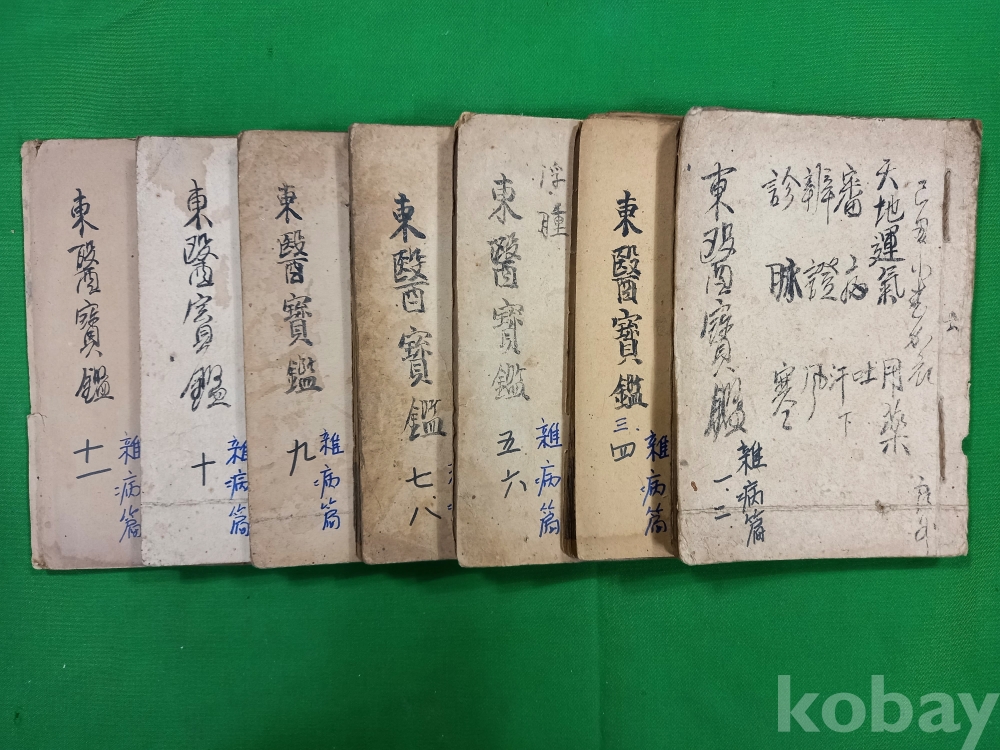 天地運氣 用藥
審病 吐
辨證 汗下
診脉 風
寒
東醫寶鑑
雜病篇
一、二
東醫寶鑑
三、四
雜病篇
浮腫
東醫寶鑑
五六
雜病篇
東醫寶鑑
七、八
東醫寶鑑
九
雜病篇
東醫宝鑑
十
雜病篇
東醫寶鑑
十一
雜病篇
kobay